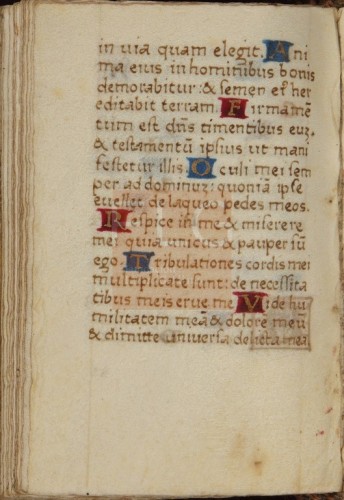 in uia quam elegit. Ani
ma eius in hominibus bonis
demorabitur: & semen ei' her
editabit terram. Firmamē
tum est dn̄s timentibus euz.
& testamentū ipsius ut mani
festetur illis. Oculi mei sem
per ad dominuz: quoniā ipse
euellet de laqueo pedes meos.
Respice in me & miserere
mei quia unicus & pauper sū
ego. Tribulationes cordis mei
multiplicate sunt: de necessita
tibus meis erue me Vide hu
militatem meā & dolorē meū
& dimitte uniuersa delicta mea